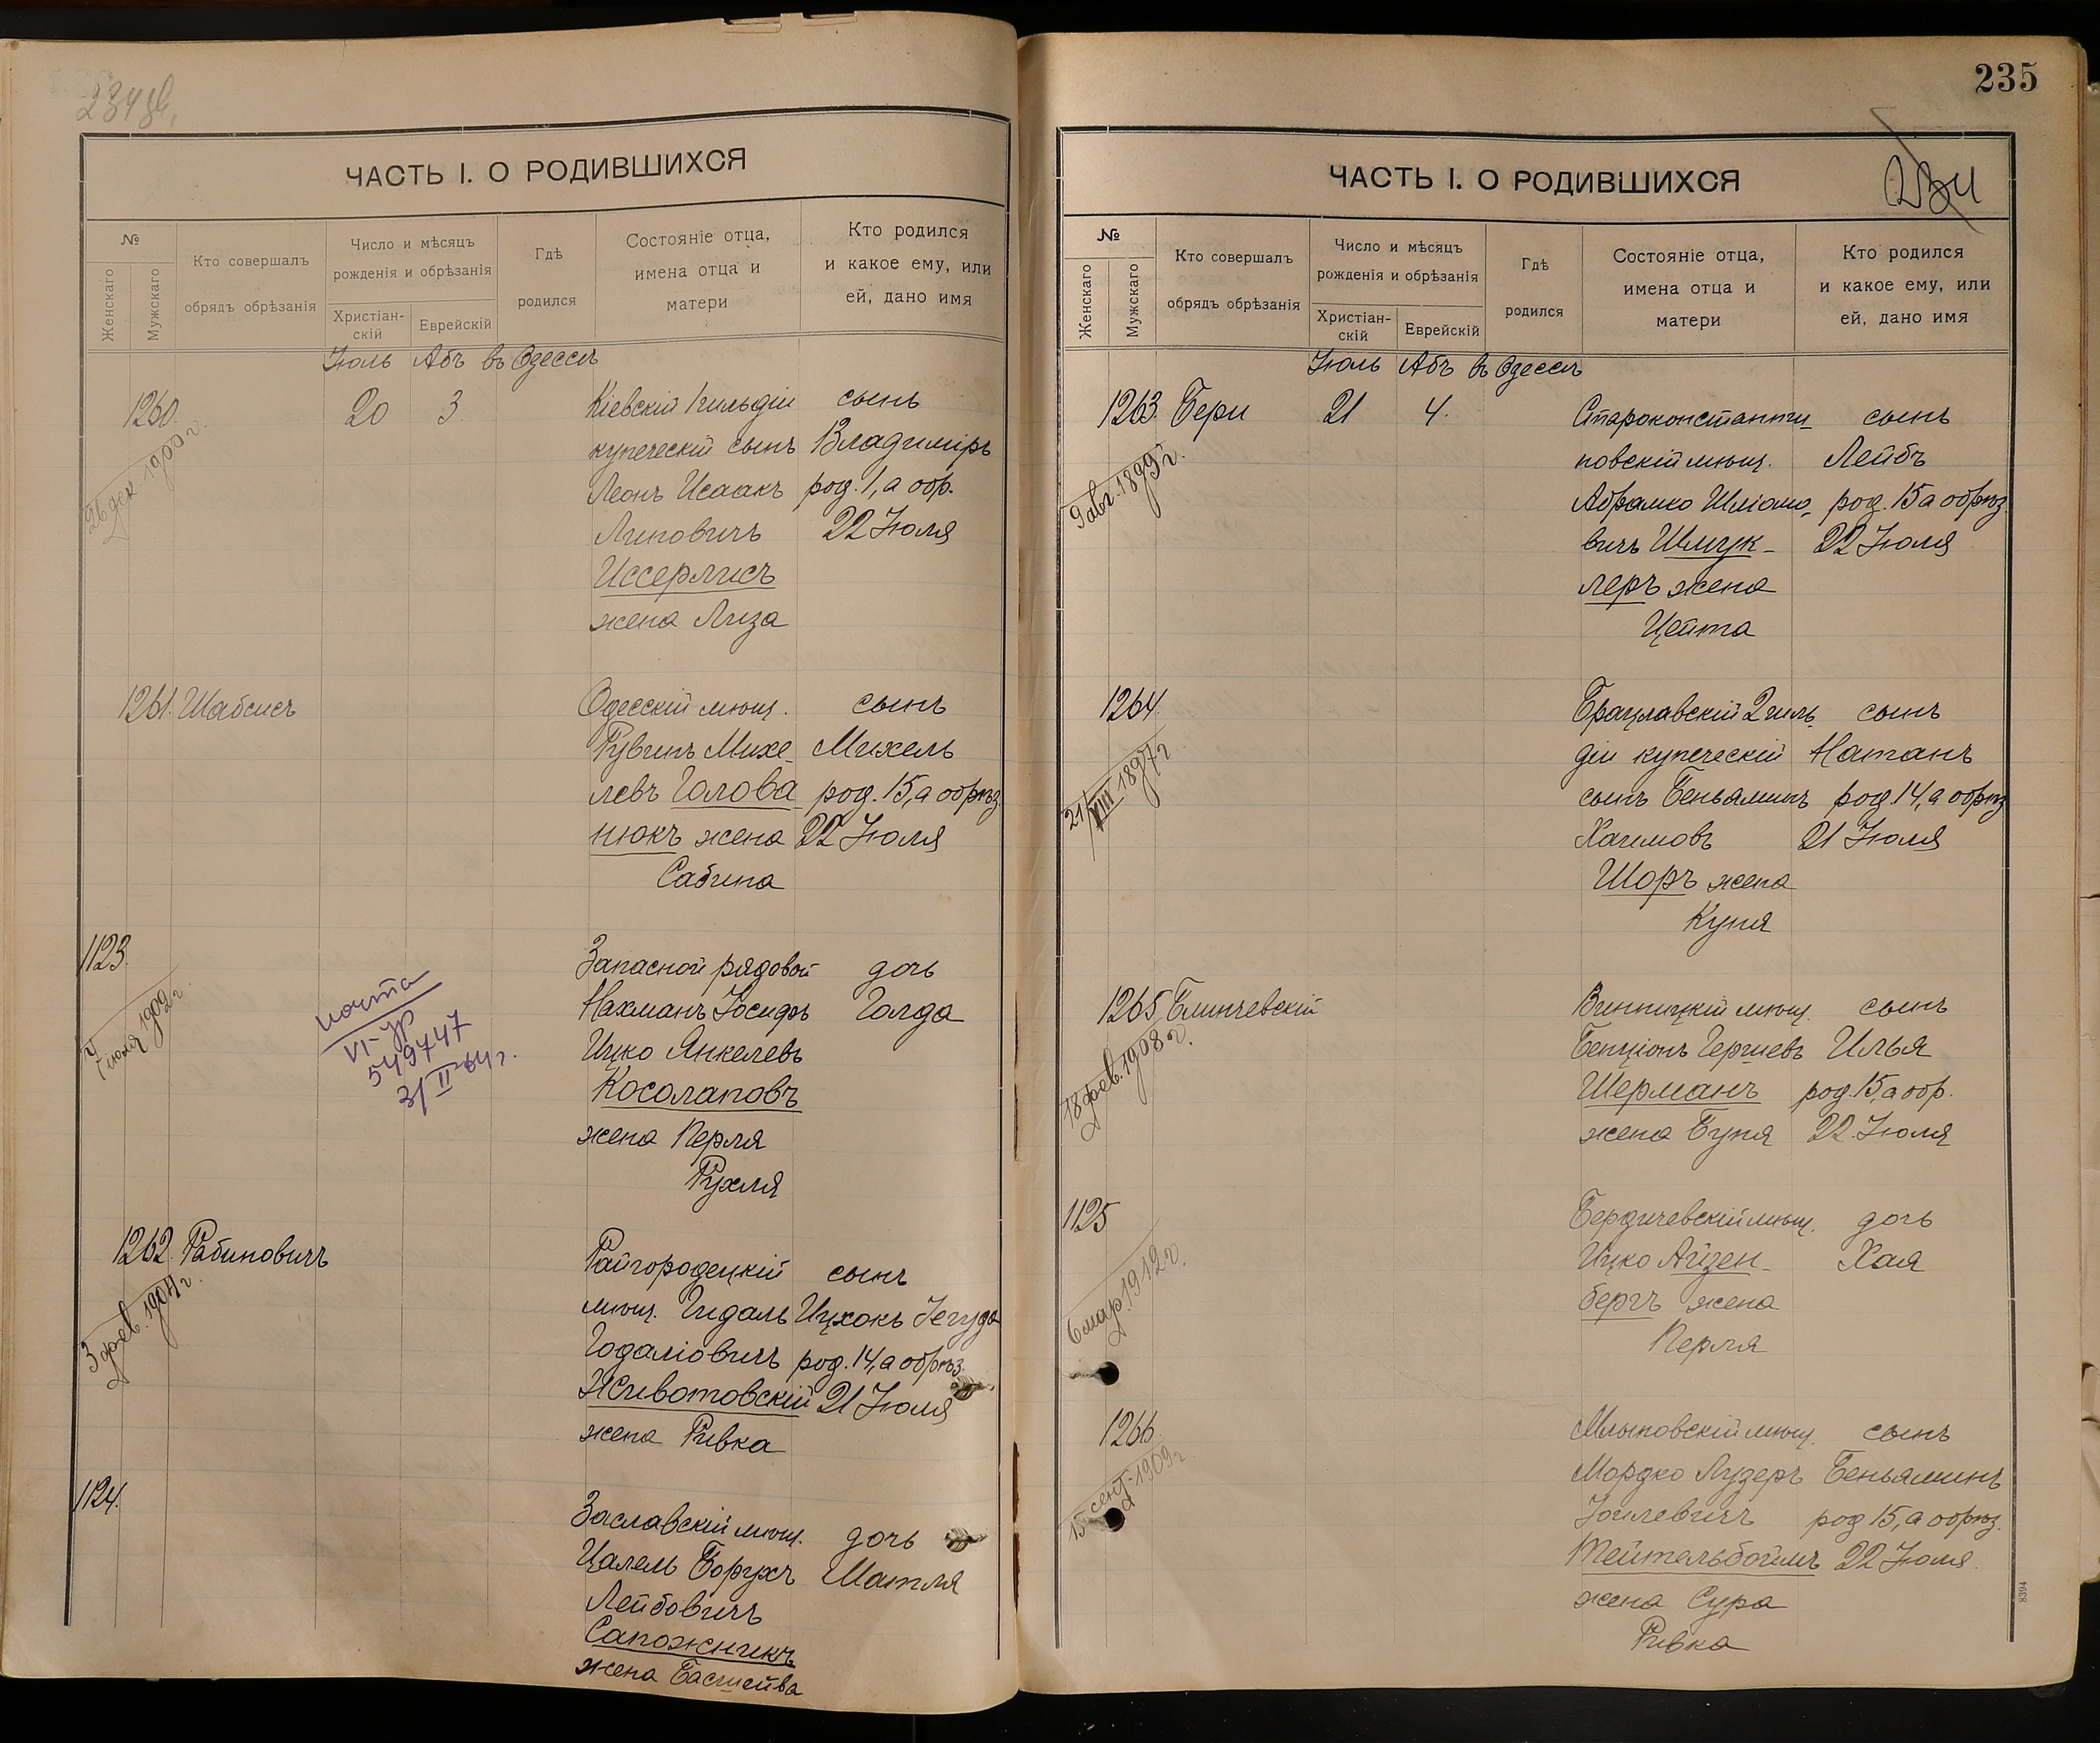 234 об.
ЧАСТЬ I. О РОДИВШИХСЯ
№
Женскаго
Мужскаго
Кто совершалъ
обрядъ обрѣзанія
Число и мѣсяцъ
рожденія и обрѣзанія
Христіан-
скій
Еврейскій
Гдѣ
родился
Состояніе отца,
имена отца и
матери
Кто родился
и какое ему, или
ей, дано имя
Іюль Абъ въ Одессѣ
1260. 20 3. Кіевскій 1 гильдіи сынъ
купеческій сынъ Владиміръ
Леонъ Исаакъ род. 1, а обр.
Липовичъ 22 Іюля
Иссерлисъ
жена Лиза
26 дек. 1900 г.
1261. Шабсисъ Одесскій мѣщ. сынъ
Рувинъ Михе- Михель
левъ Голова род. 15, а обрѣз.
нюкъ жена 22 Іюля
Сабина
1123. Запасной рядовой дочь
Нахманъ Іосифъ Голда
Ицко Янкелевъ
Косолаповъ
жена Перля
Рухля
7 іюля 1902 г.
почта
VI-ЈР
549747
3/II 64 г.
1262. Рабиновичъ Райгородецкій сынъ
мѣщ. Гидаль Ицхокъ Іегуда
Годаліовичъ род. 14, а обрѣз.
Животовскій 21 Іюля
жена Ривка
3 фев. 1904 г.
1124. Заславскій мѣщ. дочь
Цалель Борухъ Матля
Лейбовичъ
Сапожникъ
жена Басшейва
235
234
ЧАСТЬ I. О РОДИВШИХСЯ
№
Женскаго
Мужскаго
Кто совершалъ
обрядъ обрѣзанія
Число и мѣсяцъ
рожденія и обрѣзанія
Христіан-
скій
Еврейскій
Гдѣ
родился
Состояніе отца,
имена отца и
матери
Кто родился
и какое ему, или
ей, дано имя
Іюль Абъ въ Одессѣ
1263. Бери 21 4. Староконстанти- сынъ
новскій мѣщ. Лейбъ
Абрамко Шліомо- род. 15 а обрѣз.
вичъ Шмук- 22 Іюля
леръ жена
Цейта
9 авг. 1899 г.
1264. Брацлавскій 2 гиль- сынъ
діи купеческій Натанъ
сынъ Беньяминъ род. 14, а обрѣз
Хаимовъ 21 Іюля
Шоръ жена
Куня
21/VIII 1897 г.
1265. Блинчевскій Винницкій мѣщ. сынъ
Бенціонъ Гершевъ Илья
Шерманъ род. 15, а обр.
жена Буня 22 Іюля
18 фев. 1908 г.
1125 Бердичевскій мѣщ. дочь
Ицко Айзен- Хая
бергъ жена
Перля
6 мар. 1912 г.
1266. Млыновскій мѣщ. сынъ
Мордко Лузеръ Беньяминъ
Іоилевичъ род 15, а обрѣз.
Тейтельбоймъ 22 Іюля.
жена Сура
Ривка
15 сент. 1909 г.
8394